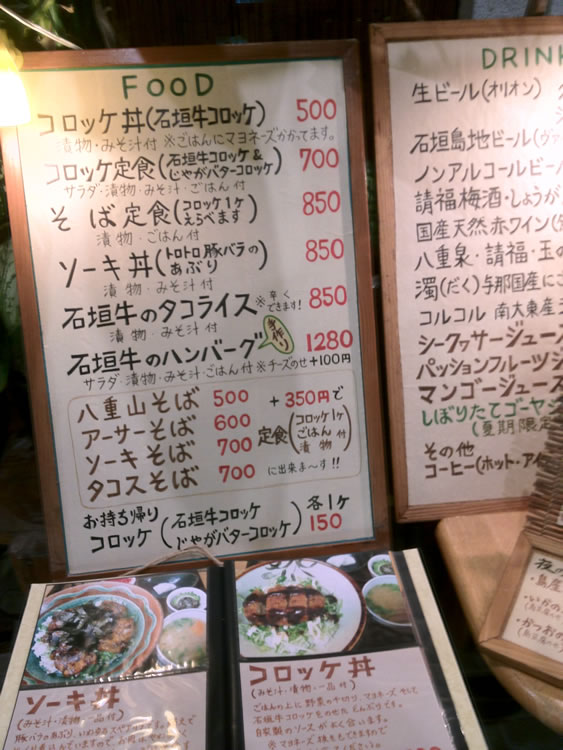 FOOD
コロッケ丼(石垣牛コロッケ) 500
漬物・みそ汁付 ※ごはんにマヨネーズかかってます。
コロッケ定食(石垣牛コロッケ&じゃがバターコロッケ) 700
サラダ・漬物・みそ汁・ごはん付
そば定食(コロッケ1ヶえらべます) 850
漬物・ごはん付
ソーキ丼(トロトロ豚バラのあぶり) 850
漬物・みそ汁付
石垣牛のタコライス ※早くできます! 850
漬物・みそ汁付
手作り
石垣牛のハンバーグ 1280
サラダ・漬物・みそ汁・ごはん付 ※チーズのせ+100円
八重山そば 500
アーサーそば 600
ソーキそば 700
タコスそば 700
+350円で
定食(コロッケ1ヶ ごはん 漬物 付)
に出来ま〜す!!
お持ち帰り
コロッケ(石垣牛コロッケ じゃがバターコロッケ) 各1ヶ 150
DRIN
生ビール(オリオン)
石垣島地ビール(ヴァ
ノンアルコールビール
請福梅酒・しょうが
国産天然赤ワイン(
八重泉・請福・玉の
濁(だく)与那国産に
コルコル 南大東産
シークヮサージュー
パッションフルーツジ
マンゴージュース
しぼりたてゴーヤジ
(夏期限定
その他
コーヒー(ホット・アイ
ソーキ丼
(みそ汁・漬物・一品付)
コロッケ丼
(みそ汁・漬物・一品付)
ごはんの上に野菜の千切り、マヨネーズ そして
石垣牛コロッケをのせた どんぶりです。
自家製のソースが よく合います。
夜の
・島産
・いかの
・かつおの